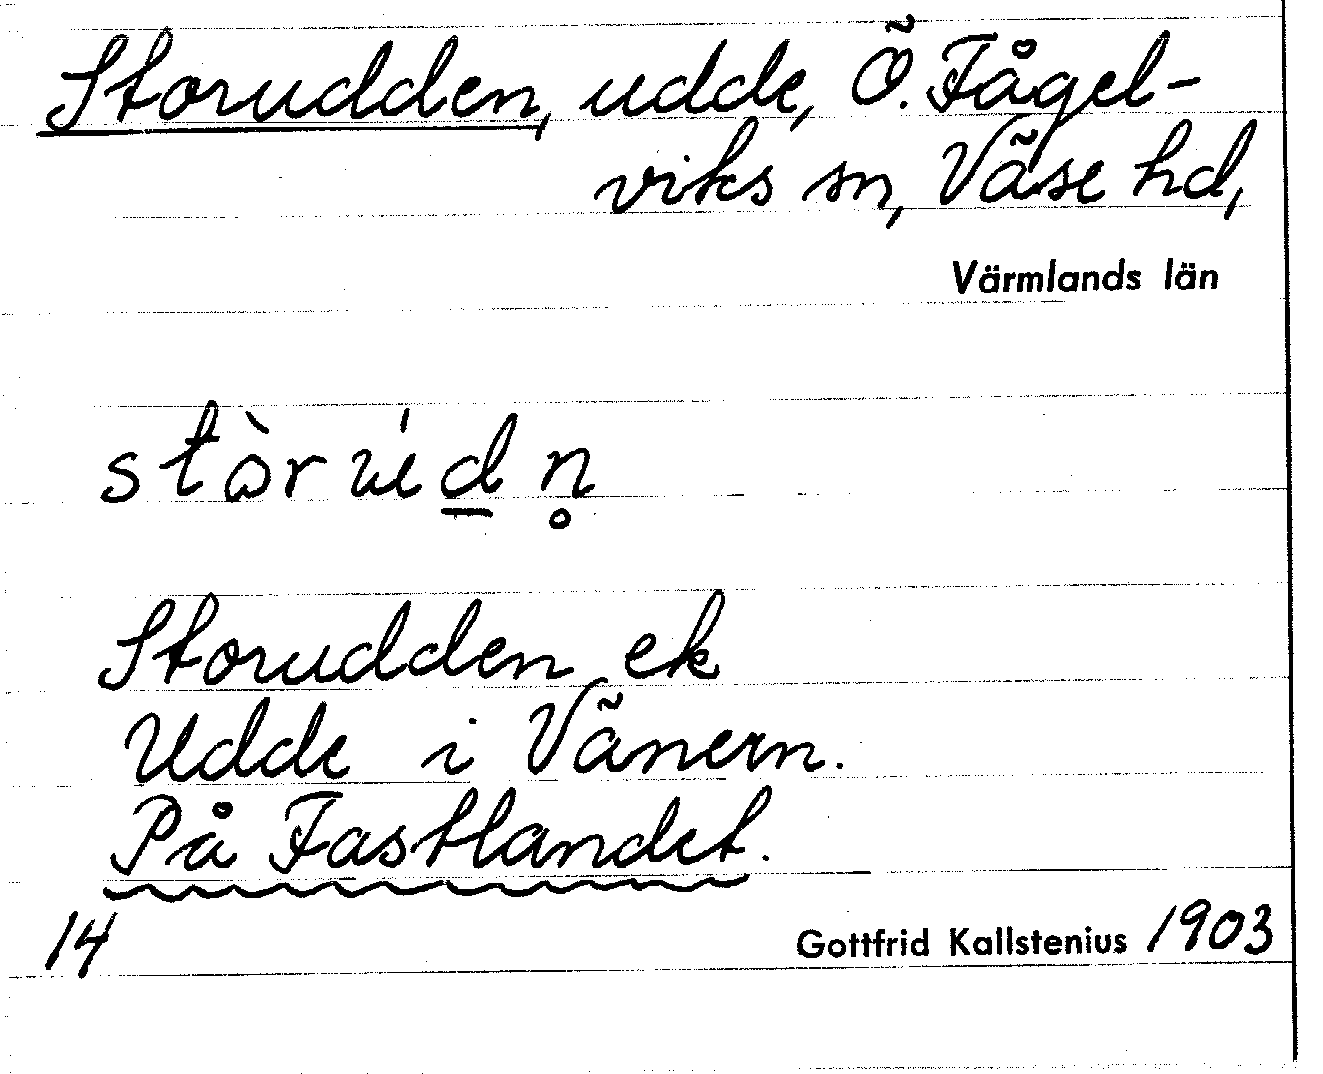 Storudden, udde, Ö. Fågel-
viks sn, Väse hd,
Värmlands län
Storudden ek
Udde i Vänern.
På Fastlandet.
14 Gottfrid Kallstenius 1903